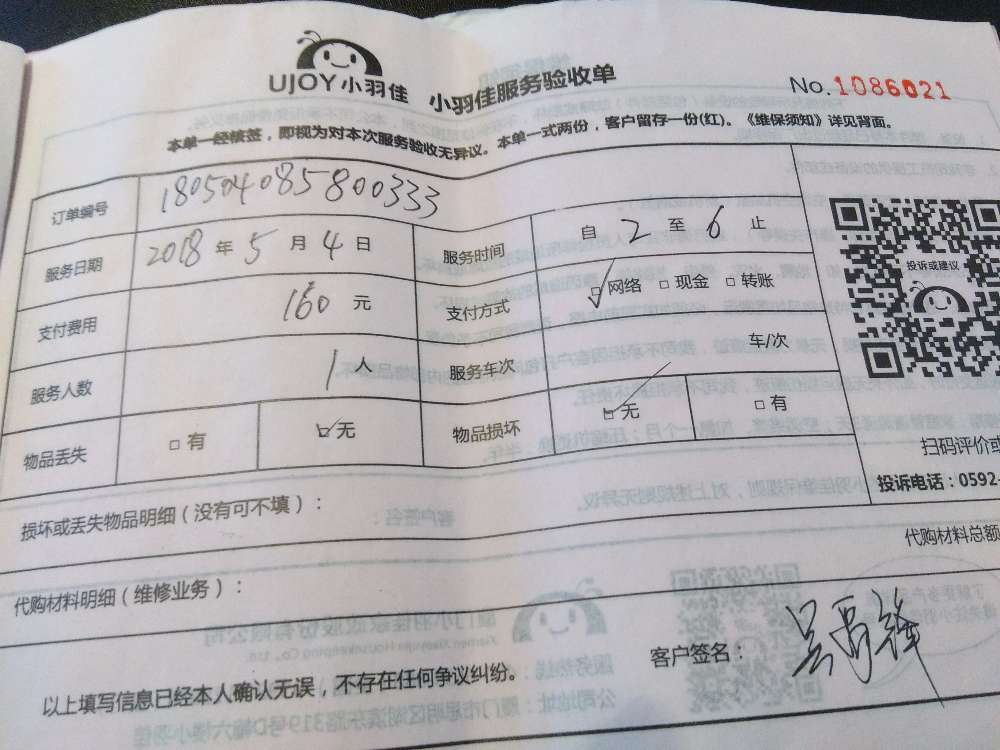 UJOY小羽佳 小羽佳服务验收单 No.1086021
本单一经核签，即视为对本次服务验收无异议。本单一式两份，客户留存一份(红)。《维保须知》详见背面。
订单编号 180504085800333
服务日期 2018 年 5 月 4 日 服务时间 自 2 至 6 止
支付费用 160 元 支付方式 ☑网络 □现金 □转账
服务人数 1 人 服务车次 车/次
物品丢失 □有 ☑无 物品损坏 ☑无 □有
投诉或建议
扫码评价或
投诉电话：0592-
损坏或丢失物品明细（没有可不填）：
代购材料总额
代购材料明细（维修业务）：
客户签名：
以上填写信息已经本人确认无误，不存在任何争议纠纷。